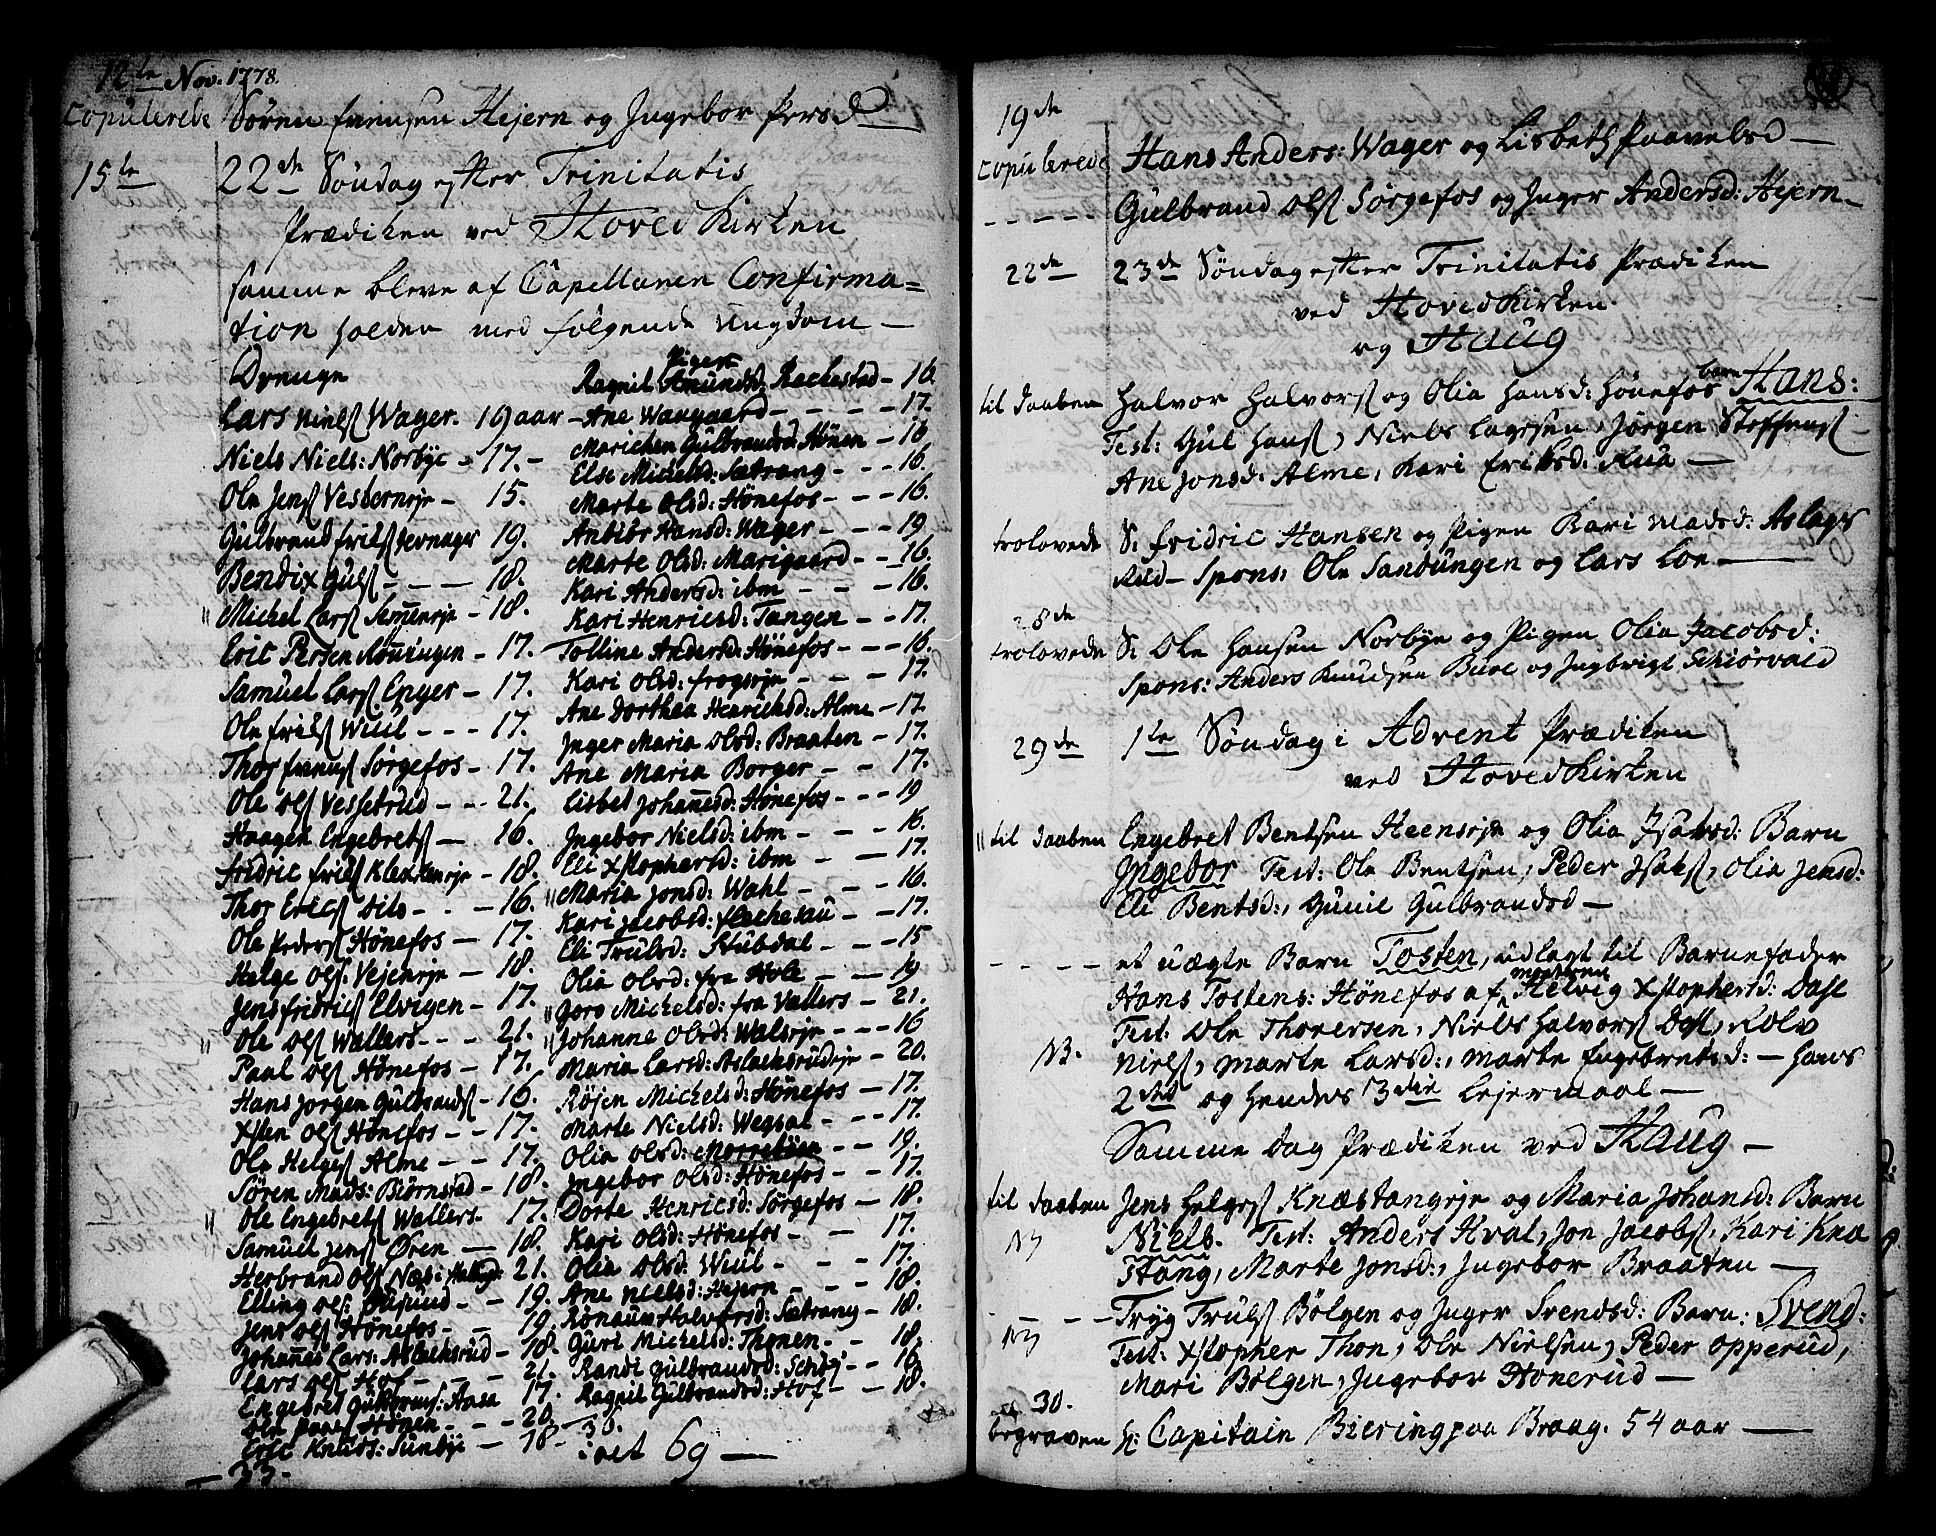 12te Nov. 1778.
Copulerede Sören frensen Hejern og Ingebor Persd
15te 22de Søndag efter Trinitatis
Prædiken ved Hoved Kirken
samme bleve af Capellanen Confirma=
tion holden med følgende ungdom —
Drenge
Lars Niels Wager. 19 aar
Niels Niels: Norbye - 17. -
Ole Jens Vesterneje - 15.
Gulbrand 19.
Bendix Guls - - - 18.
Michel Lars - 18.
Eric Persen Rönningen - 17.
Samuel Lars Enger - 17.
Ole frils Wiul - - - 17.
Thor frens Sørgefos - 17.
Ole Ols Vesseterud - - - 21.
Haagen Engebrets - 16.
fridric frils Klekkeneje - 18.
Thor Erics dito - - - 16.
Ole Peders Hönefos - 17.
Helge Ols: Vejeneje - 18.
Jens fridrics Elvigen - 17.
Ole Ols Wallers - - - 21.
Paal Ols Hönefos - - 17.
Hans Jorgen Gulbrands - 16.
Xsten Ols Hönefos - - 17.
Ole Helges Alme - - 17.
Sören Mads: Biörnstad - 18.
Ole Engebrets Wallers. 17.
Samuel Jens Øren - 18.
Herbrand Ols 21.
Elling Ols: - - 19.
Jens Ols Hönefos - - 19.
Johannes Lars: Aslaksrud - 18.
Lars Ols Hof - - - 21.
Engebret Gulbrans: Aasa 17.
Ole Paals Hönen - - - 20.
Eric Knuds: Sundbye - 18.
33.
Piger
Ragnil Amundsd: Rachestad - 16.
Ane Waagaard - - - - 17.
Marichen Gulbrandsd: Hönen - 16
Else Michelsd: Sætrang - - - 16.
Marte Olsd: Hönefos - - - 16.
Anbiör Hansd: Wager - - - 19
Marte Olsd: Marigaard - - 16.
Kari Andersd: ibm - - - 16.
Kari Henricsd: Tangen - - 17.
Tolline Andersd: Hönefos - - - 16.
Kari Olsd: frogeje - - - 17.
Ane Dorthea Henrichsd: Alme - 17.
Inger Maria Olsd: Braaten - 17.
Ane Maria Borger - - 17.
Lisbet Johannesd: Hönefos - - - 19
Ingebor Nielsd: ibm - - - 16.
Eli Xstophersd: ibm - - 17.
Maria Jonsd: Wahl - - - 16.
Kari Jacobsd: - - 17.
Eli Trulsd: Stubdal - - - 15
Olia Olsd: fra Hole - - 19
Goro Michelsd: fra Vallers - 21.
Johanne Olsd: Walseje - - - 16
Maria Larsd: Aslacksrudeje - 20.
Röjen Michelsd: Hönefos - 17.
Marte Nielsd: Wegsal - - 17.
Olia Olsd: - - 19.
Ingebor Olsd: Hönefos - - 17.
Dorte Henricsd: Sørgefos - 18.
Kari Olsd: Hönefos - - 17.
Olia Olsd: Wiul - - - 17.
Ane Nielsd: Hejern - - - 18.
Rönaug Halvorsd: Sætrang - 18.
Guri Michelsd: Thonen - - 18.
Randi Gulbrandsd: - - 16
Ragnil Gulbrandsd: Hof - - 18.
36.
: alt 69 —
19de
Copulerede Hans Anders: Wager og Lisbeth Paavelsd —
- - - - - Gulbrand Ols Sørgefos og Inger Andersd: Hejern -
22de 23de Søndag efter Trinitatis Prædiken
ved Hoved Kirken.
og Haug
til daaben Halvor Halvors og Olia Hansd: Hönefos barn Hans:
Test: Gul Hans, Niels Lagesen, Jørgen Steffens -
Ane Jonsd: Alme, Kari Eriksd: Rua —
trolovede S: fridric Hansen og Pigen Kari Madsd: Aslags
Rud - Spons: Ole Sandungen og Lars Loe —
28de
trolovede S: Ole Hansen Norbye og Pigen Olia Jacobsd:
Spons: Anders Knudsen Bure og Ingbrigt Schiørvald
29de 1te Søndag i Advent Prædiken
ved Hoved Kirken
til daaben Engebret Bentsen Heenseje og Olia Isaksd: Barn
Ingebor Test: Ole Bentsen, Peder Isaks, Olia Jensd:
Eli Bentsd:, Gunil Gulbrandsd —
- - - - et uægte Barn Tosten, udlagt til Barnefader
Hans Tostens: Hönefos af Helvig Xstophersd: Dase
Test: Ole Thoersen, Niels Halvors Dase, Rolv
NB. Niels, Marte Larsd:, Marte Engebretsd: - Hans
2det og hendes 3die Lejermaal —
Samme dag Prædiken ved Haug —
til daaben Jens Helges Knæstangeje og Maria Johansd: Barn
Niels. Test: Anders Hval, Jon Jacobs, Kari Knæ
Stang, Marte Jonsd:, Ingebor Braaten —
- - - Tryg Truls Bölgen og Inger Svendsd: Barn: Svend:
Test: Xstopher Thon, Ole Nielsen, Peder Opperud,
Mari Bölgen, Ingebor Hönerud —
30.
begraven H: Capitain Biering paa Braag. 54 aar —